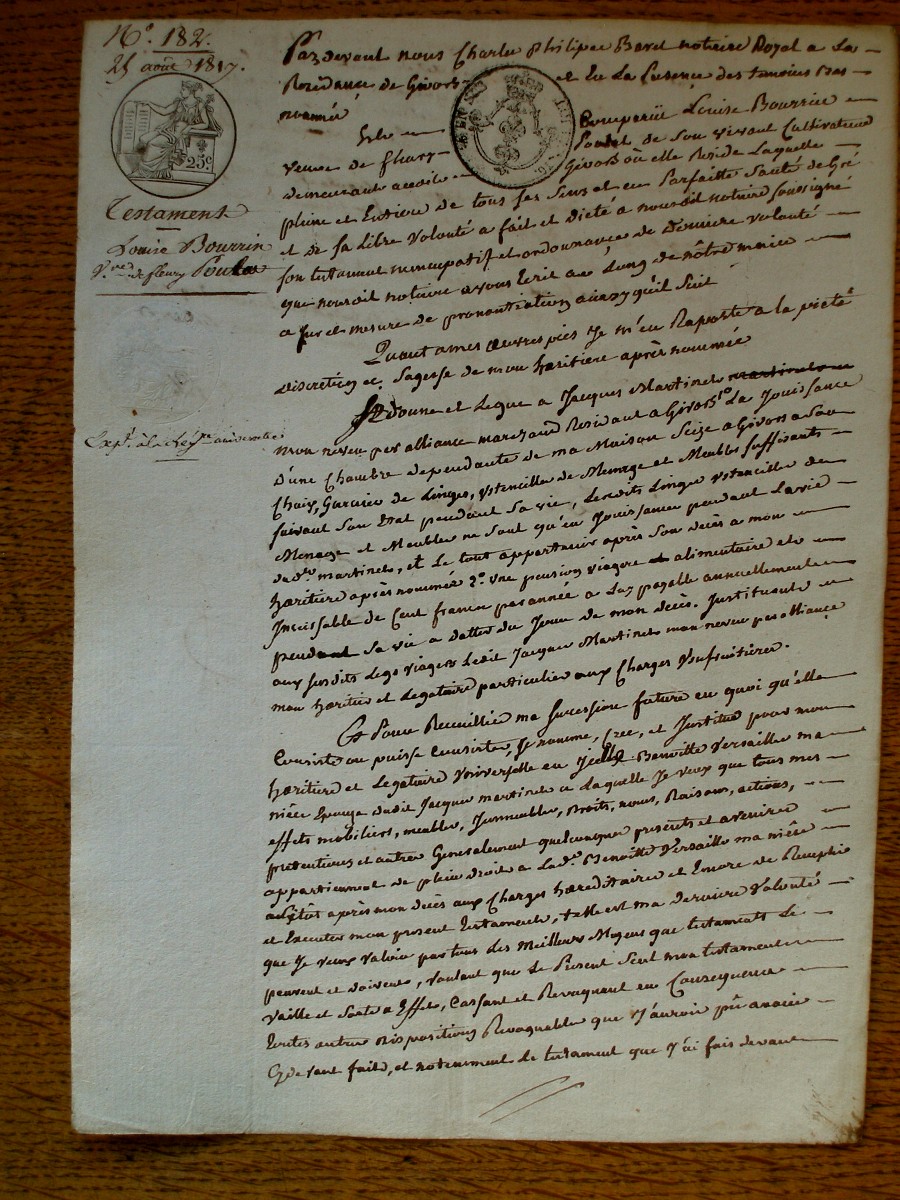 N°. 182.
25 août 1817.
25c.
Testament
Louise Bourrin
V.ve de fleury Poulet
Exp.
Pardevant nous Charle Philipee Baret notaire Royal a La
Residance de Givors et En La Presence des temoins bas
nommés
Est Comparüe Louise Bourrin
veuve de fleury Poulet de Son vivant Cultivateur
demeurant audit Givors où elle Reside Laquelle
pleine et Entiere de tous ses Sens et en Parfaitte Santé de Gré
et de sa Libre Volonté a fait et dicté a nousdit notaire Soussigné
son testament nuncupatif et ordonnance de derniere volonté
que nousdit notaire avons Ecrit au Long de nôtre main
a fur et mesure de prononciation ainsy qu'il Suit
Quant a mes œuvres pies Je m'en Raporte a la pieté
discretion et Sagesse de mon hæritiere après nommée
Je donne et Legue a Jacques Martinet
mon neveu par alliance marchand Residant a Givors 1° La Jouissance
d'une Chambre dependante de ma Maison Scize a Givors a Son
Choix, Garnie de Linges, Ustencilles de Menage et Meubles Suffisants
suivant Son Etat pendant Sa vie, Lesdits Linges Ustencilles de
Menage et Meubles ne Sont qu'en Jouissance pendant La vie
dud. martinet, et Le tout appartenir après Son decès a mon
hæritiere après nommée 2° une pension viagere alimentaire et
Incessible de Cent francs par année a Luy payable annuellement
pendant Sa vie a datter du Jour de mon decès. Justituant
aux susdits Legs viagers Ledit Jacques Martinet mon neveu par alliance
mon hæritier et Legataire particulier aux Charges Usufruitières.
Et Pour Recueillir ma Sucession future en quoi qu'elle
Consiste ou puisse Consister, Je nomme, Cree, et Justitue pour mon
hæritiere et Legataire Universelle en Icelle Benoitte Versaille ma
niéce Epouze dudit Jacques martinet a Laquelle Je veux que tous mes
effets mobiliers, meubles, Immeubles, Droits, noms, Raisons, actions,
pretentions et autres Generalement quelconques presents et avenirs
appartiennent de plein Droit a Lad. Benoitte Versaille ma niéce
aussitôt après mon decès aux Charges hæreditaire et Encore de Remplir
et Executer mon present testament, telle est ma derniere Volonté
que Je veux Valoir par tous des Meilleurs Moyens que testaments Le
peuvent et doivent, voulant que Le Present Seul mon testament
Vaille et Sorte a Effet, Cassant et Revoquant en Consequence
toutes autres dispositions Revoquables que J'aurois pû avoir
Cydevant fait, et notamment Le testament que J'ai fais devant